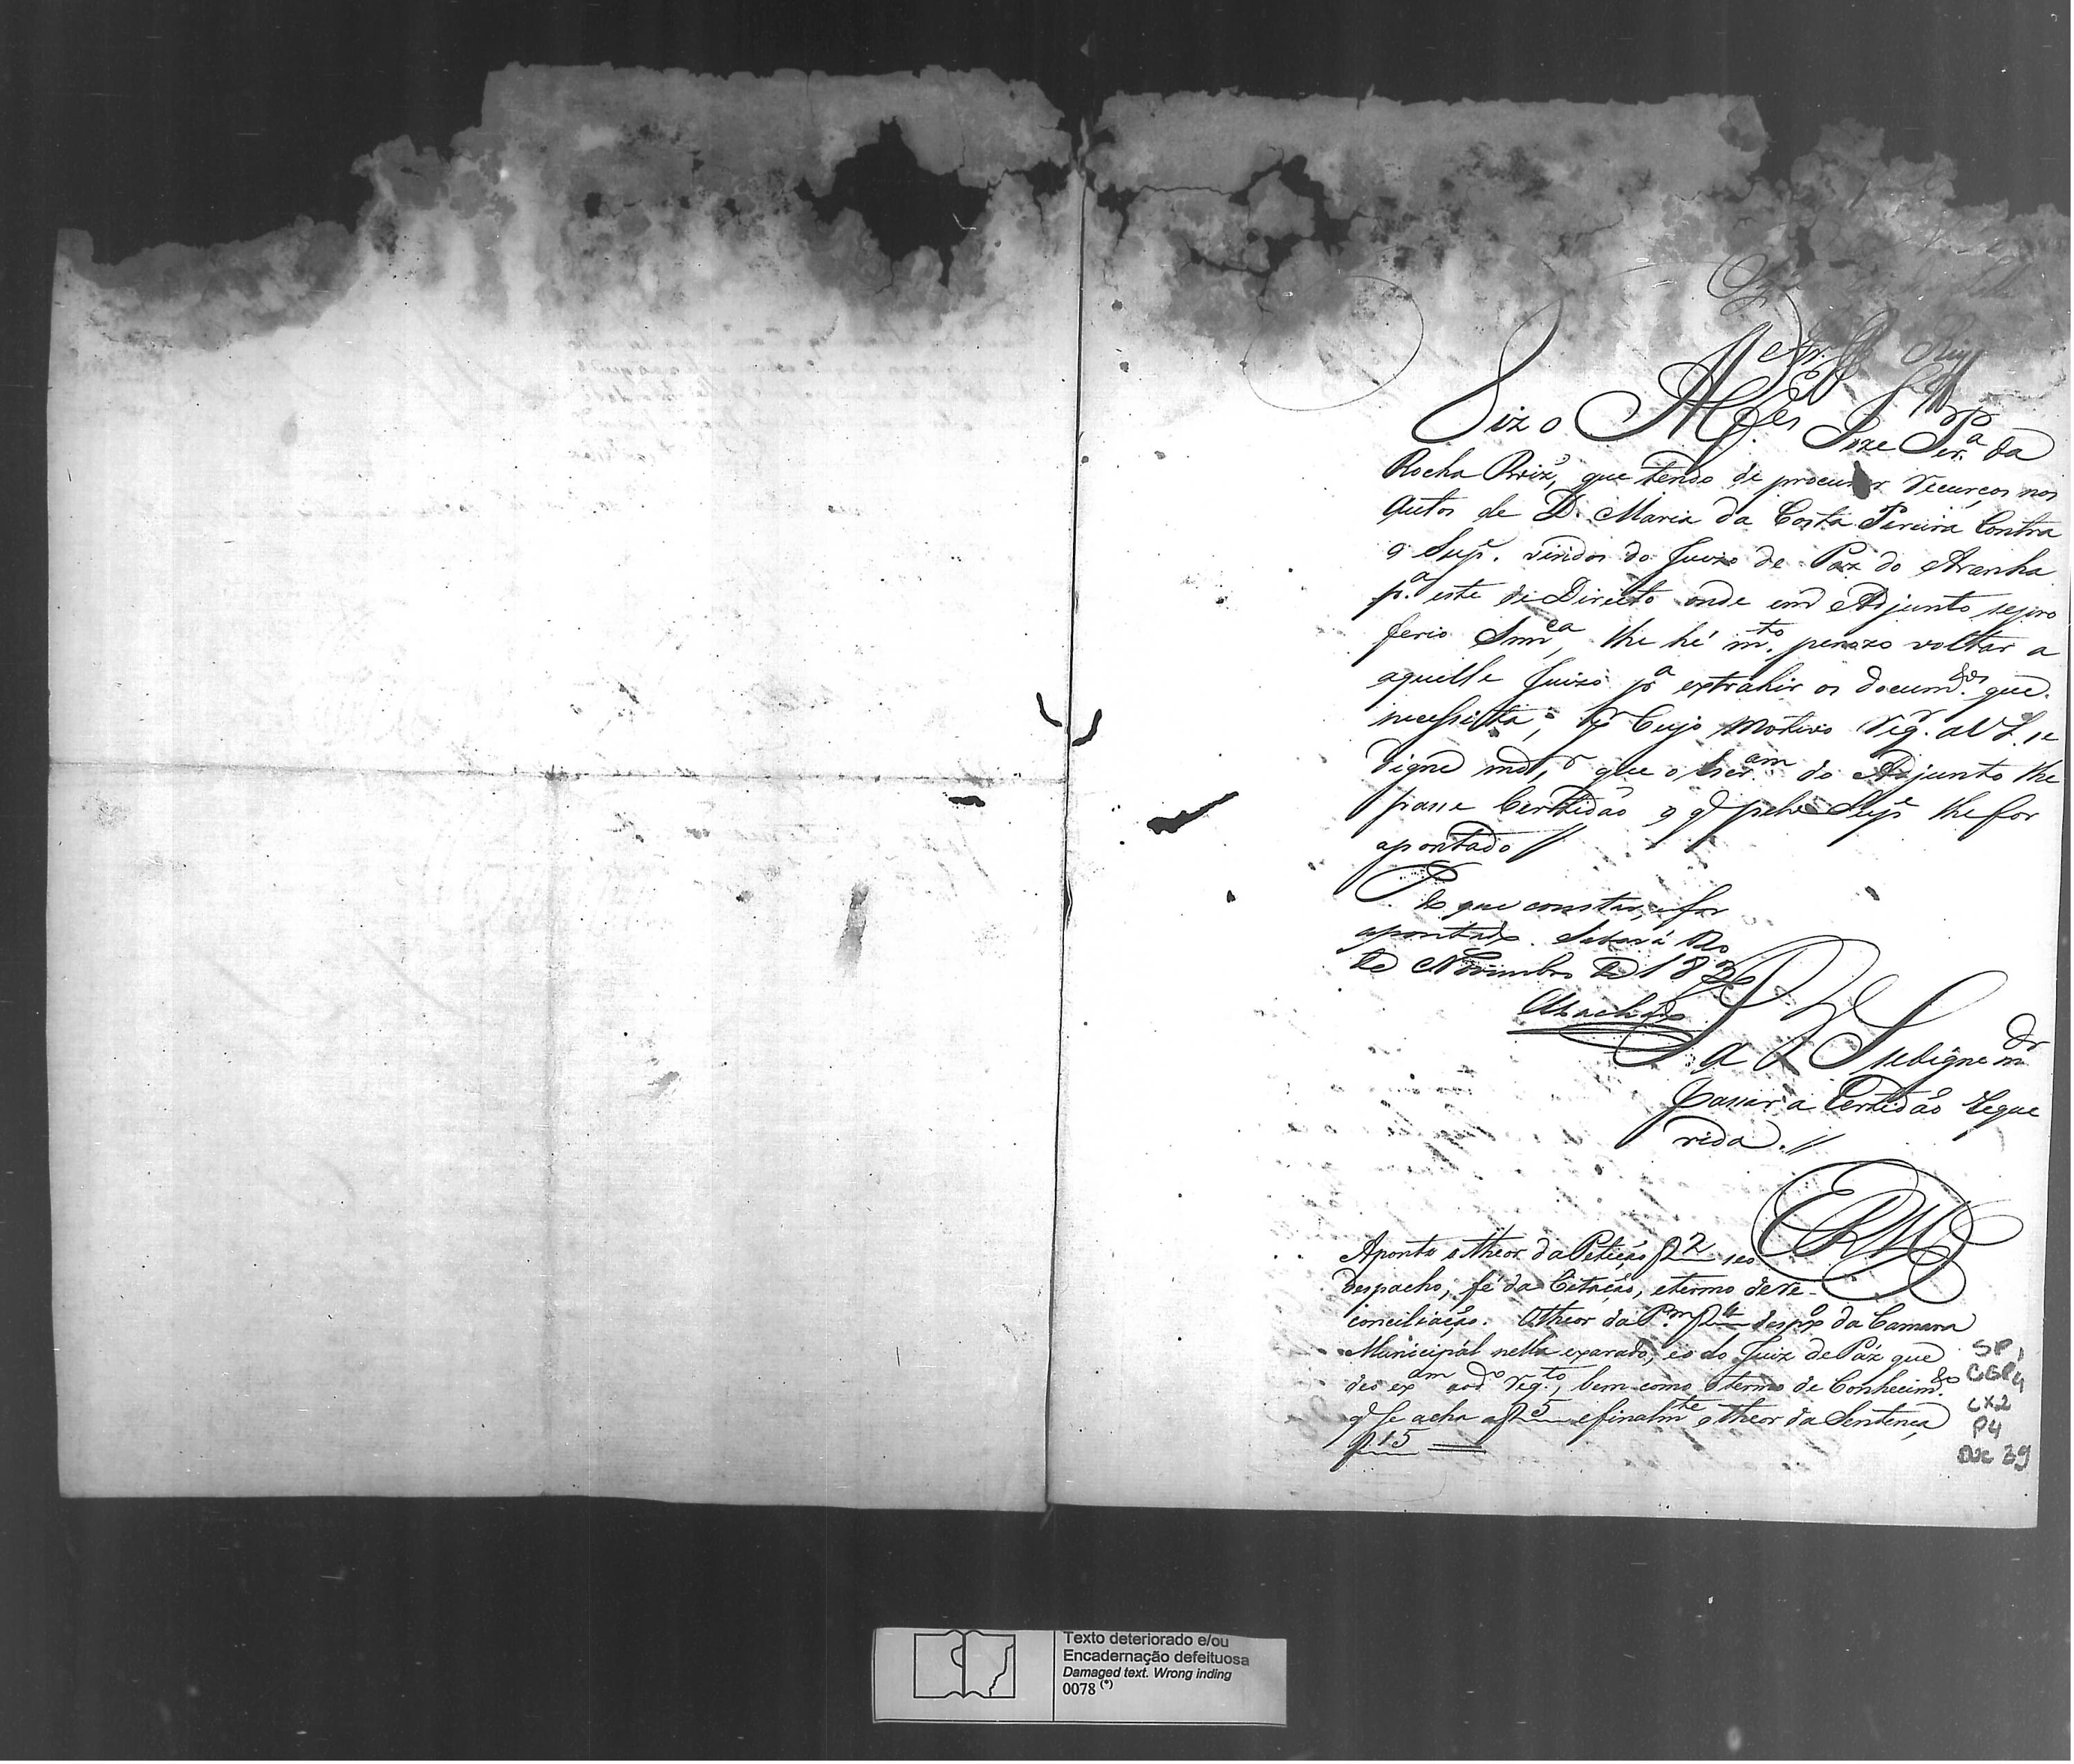 Diz o Alf.es Joze Per.a da
Rocha Roiz, que tendo de procurar recurços nos
Autos de D. Maria da Costa Pereira Contra
o Sup.e vindos do Juizo de Paz do Aranha
p.a este de Direito onde em Adjunto se pro
ferio Snn.ca, lhe hé m.to penozo voltar a
aquelle Juizo p.a extrahir os docum.tos que
necessita; p.r Cujo motivo req.r a V S. se
digne md.r que o Escr.am do Adjunto lhe
passe Certidão o q pelo Sup.e lhe for
apontado //
P. do que constar, e for
apontado. Sabará
de Novembro de 183
Machado
P. a V S se digne m.dr
passar a Certidão reque
rida. //
ERM
Aponto o theor da Petição f 2 seo
despacho, fé da Citação, e termo de re-
conciliação. O theor da P.m f 4 desp.o da Camara
Municipál nella exarado, e o do Juiz de Páz que
deo ex.am ao d.o req.to, bem como o termo de Conhecim.to
q se acha a f 5 e finalm.te o theor da Sentença
f 15
SP 1
CGP 4
CX2
P4
Doc 39
Texto deteriorado e/ou
Encadernação defeituosa
Damaged text. Wrong inding
0078 (*)